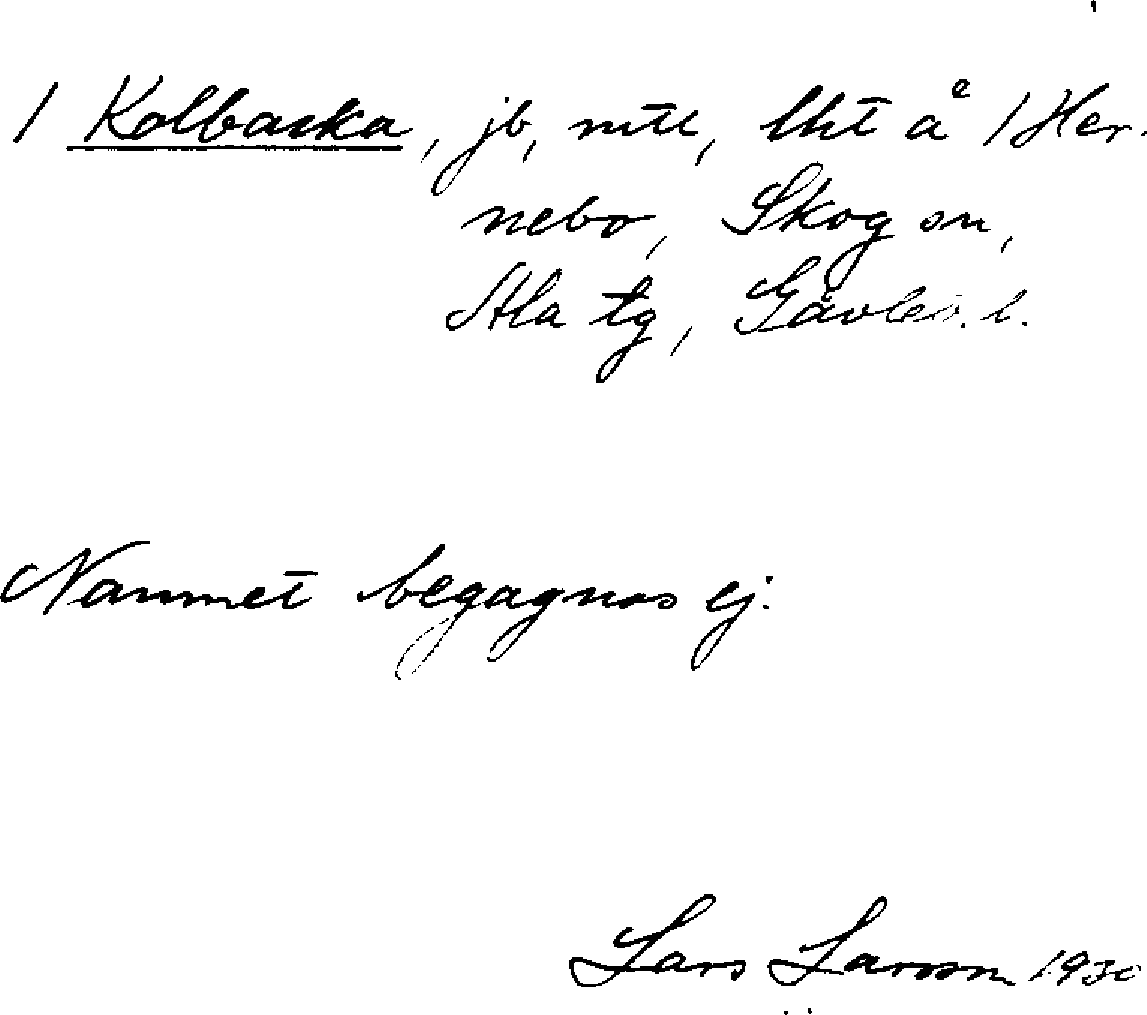 / Kolbacka, jb, mtl, lht å / Her-
nebo, Skog sn,
Ala tg, Gävleb. l.
Namnet begagnas ej.
Lars Larsson 1930